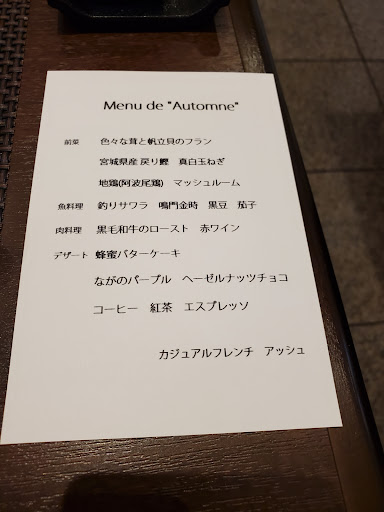 Menu de "Automne"
前菜 色々な茸と帆立貝のフラン
宮城県産 戻り鰹 真白玉ねぎ
地鶏(阿波尾鶏) マッシュルーム
魚料理 釣りサワラ 鳴門金時 黒豆 茄子
肉料理 黒毛和牛のロースト 赤ワイン
デザート 蜂蜜バターケーキ
ながのパープル ヘーゼルナッツチョコ
コーヒー 紅茶 エスプレッソ
カジュアルフレンチ アッシュ